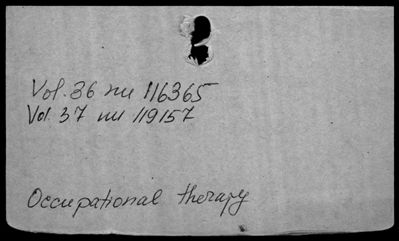 Vol. 36 nu 116365
Vol. 37 nu 119157
Occupational therapy